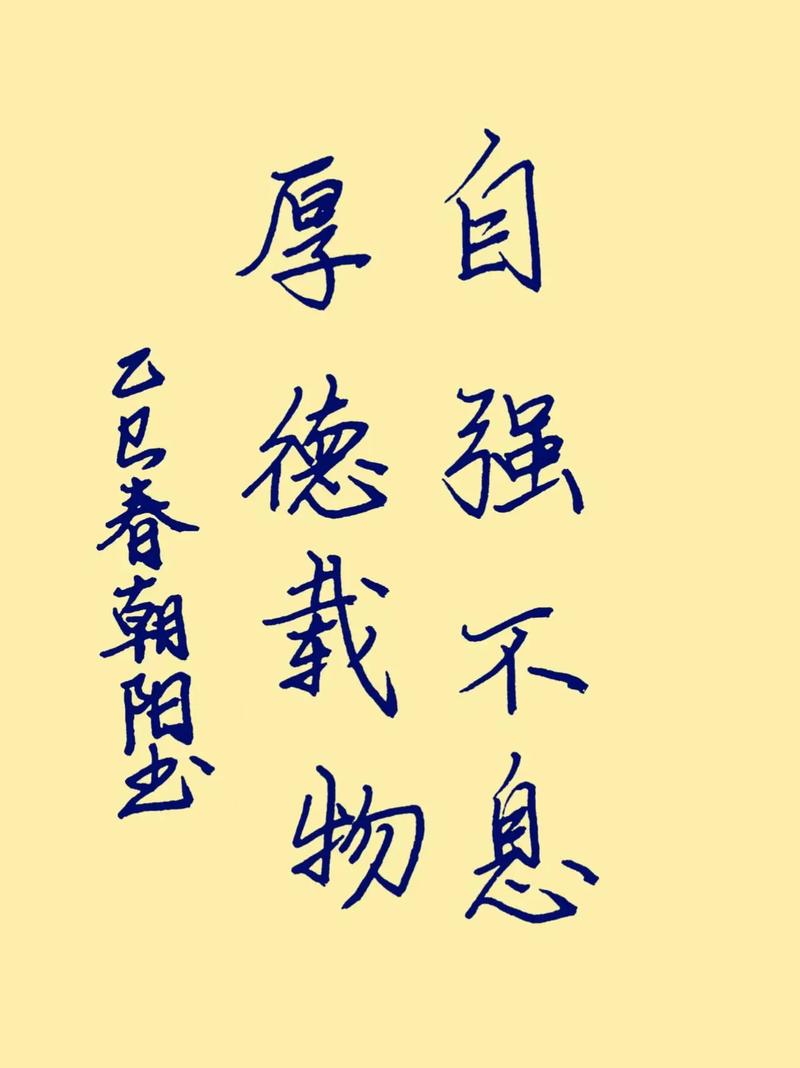 自强不息
厚德载物
乙巳春朝阳书